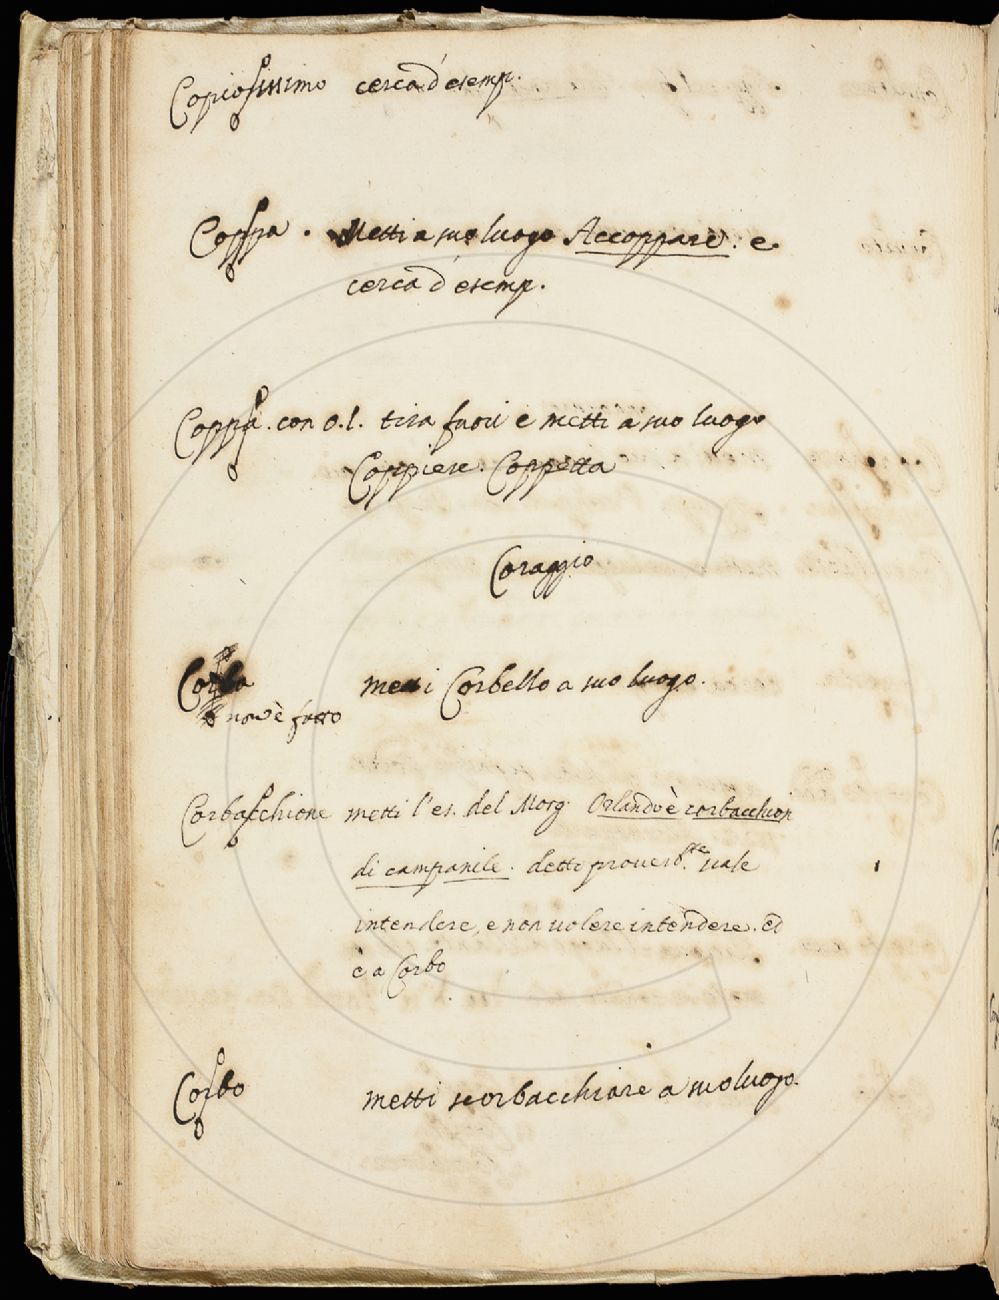 Copiosissimo cerca d'esemp.
Coppa . Metti a suo luogo Accoppare. e
cerca d'esemp.
Coppa. con o.l. tira fuori e metti a suo luogo
Coppiere. Coppetta
Coraggio
Corba metti Corbello a suo luogo.
non è fatto
Corbacchione metti l'es. del Morg. Orlando è corbacchion
di campanile. detti proverb.te vale
intendere, e non volere intendere. ed
è a Corbo
Corbo metti scorbacchiare a suo luogo.